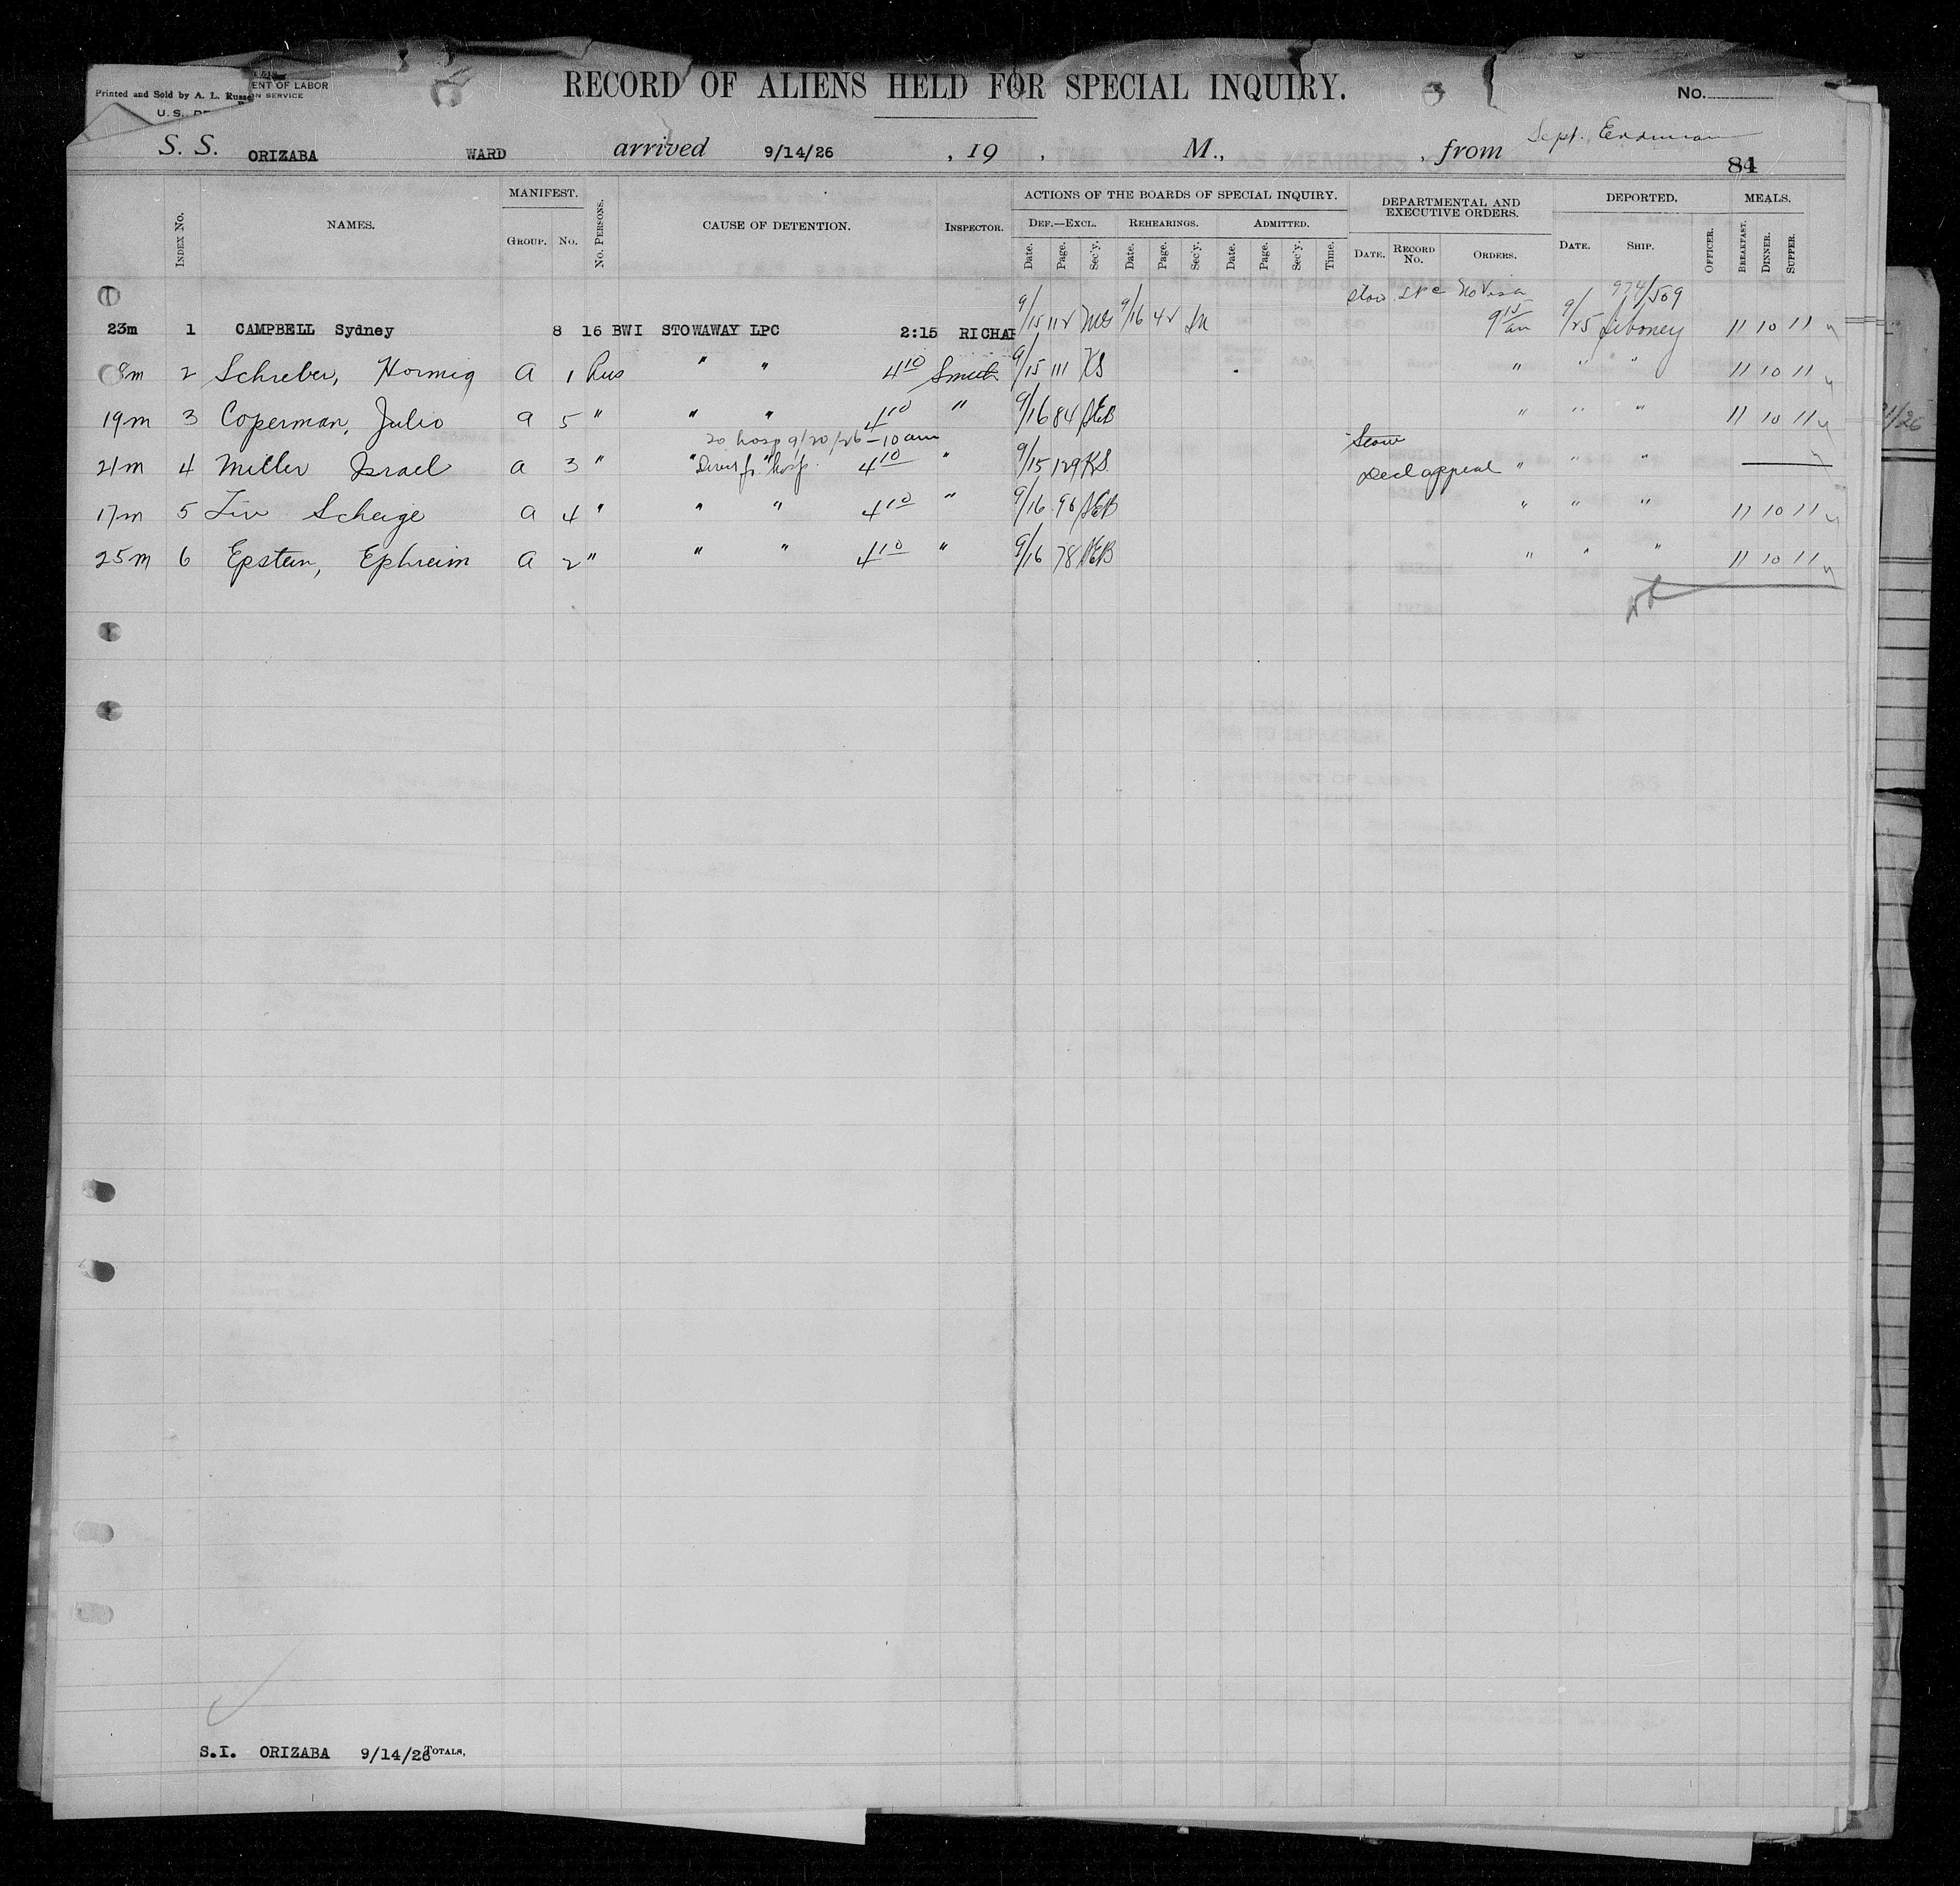 Printed and Sold by A. L. Russe
ENT OF LABOR
N SERVICE
U. S. DE
RECORD OF ALIENS HELD FOR SPECIAL INQUIRY.
No.
S. S. ORIZABA WARD arrived 9/14/26, 19 , M., , from Sept.
84
INDEX No. NAMES. MANIFEST. GROUP. No. No. PERSONS. CAUSE OF DETENTION. INSPECTOR. ACTIONS OF THE BOARDS OF SPECIAL INQUIRY. DEF.—EXCL. Date. Page. Sec'y. REHEARINGS. Date. Page. Sec'y. ADMITTED. Date. Page. Sec'y. Time. DEPARTMENTAL AND EXECUTIVE ORDERS. DATE. RECORD No. ORDERS. DEPORTED. DATE. SHIP. OFFICER. MEALS. BREAKFAST. DINNER. SUPPER.
Stow LPC No Visa 974/509
23m 1 CAMPBELL Sydney 8 16 BWI STOWAWAY LPC 2:15 RICHAR 9/15 112 9/16 42 9 15 am 9/25 Siboney 11 10 11
8m 2 Schreber, Hormig a 1 Rus " " 4 10 Smith 9/15 111 KS " " " 11 10 11
19m 3 Coperman, Julio a 5 " " " 4 10 " 9/16 84 AEB " " " 11 10 11
to hosp 9/20/26 – 10 am
Stow
21m 4 Miller Israel a 3 " " " hosp. 4 10 " 9/15 129 KS. Decl appeal " " "
17m 5 Liv Scheige a 4 " " " 4 10 " 9/16 90 AEB " " " 11 10 11
25m 6 Epstein, Ephreim a 2 " " " 4 10 " 9/16 78 AEB " " " 11 10 11
S.I. ORIZABA 9/14/26 TOTALS,